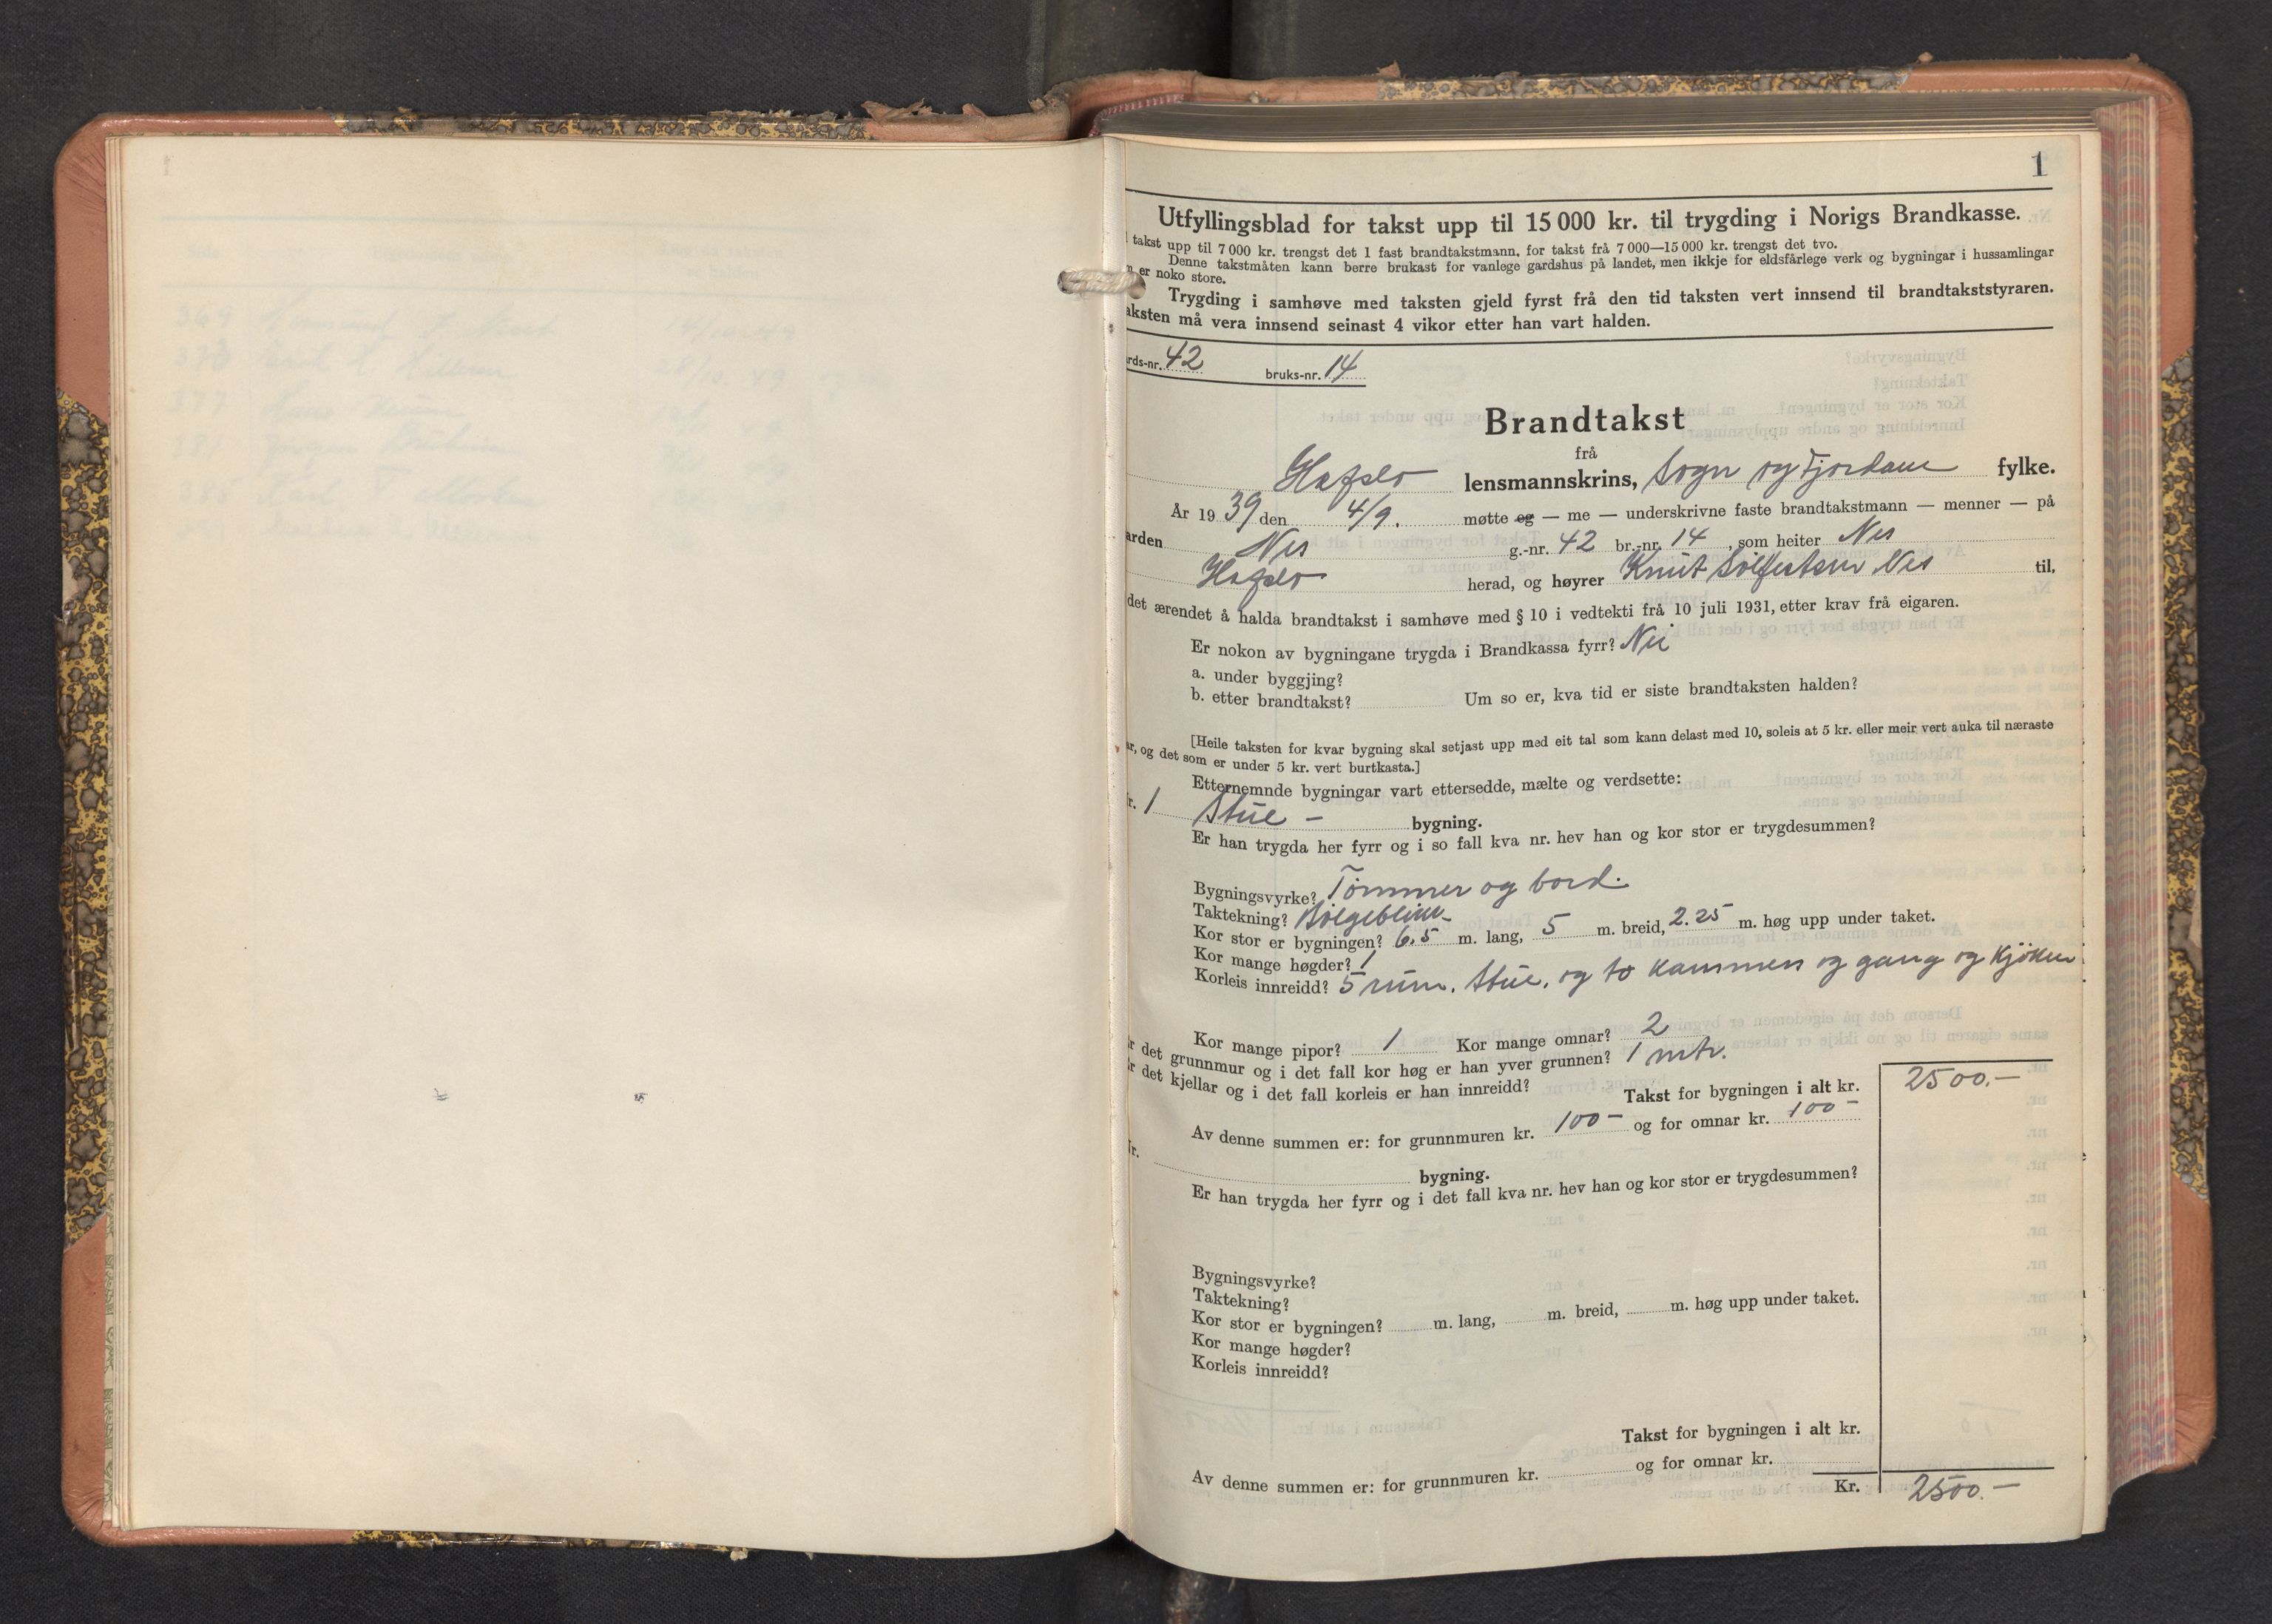 1
Utfyllingsblad for takst upp til 15 000 kr. til trygding i Norigs Brandkasse.
takst upp til 7 000 kr. trengst det 1 fast brandtakstmann, for takst frå 7 000—15 000 kr. trengst det tvo.
Denne takstmåten kann berre brukast for vanlege gardshus på landet, men ikkje for eldsfårlege verk og bygningar i hussamlingar
er noko store.
Trygding i samhøve med taksten gjeld fyrst frå den tid taksten vert innsend til brandtakststyraren.
aksten må vera innsend seinast 4 vikor etter han vart halden.
rds-nr. 42 bruks-nr. 14
Brandtakst
frå
Hafslo lensmannskrins, Sogn og Fjordane fylke.
År 1939 den 4/9. møtte eg — me — underskrivne faste brandtakstmann — menner — på
arden Nes g.-nr. 42 br.-nr. 14, som heiter Nes
Hafslo herad, og høyrer Knut Sølfestsen Nes til,
det ærendet å halda brandtakst i samhøve med § 10 i vedtekti frå 10 juli 1931, etter krav frå eigaren.
Er nokon av bygningane trygda i Brandkassa fyrr? Nei
a. under byggjing?
b. etter brandtakst? Um so er, kva tid er siste brandtaksten halden?
[Heile taksten for kvar bygning skal setjast upp med eit tal som kann delast med 10, soleis at 5 kr. eller meir vert auka til næraste
ar, og det som er under 5 kr. vert burtkasta.]
Etternemnde bygningar vart ettersedde, mælte og verdsette:
r. 1 Stue - bygning.
Er han trygda her fyrr og i so fall kva nr. hev han og kor stor er trygdesummen?
Bygningsvyrke? Tømmer og bord.
Taktekning? Bølgeblikk
Kor stor er bygningen? 6,5 m. lang, 5 m. breid, 2.25 m. høg upp under taket.
Kor mange høgder? 1
Korleis innreidd? 5 rum. Stue, og to kammers og gang og kjøken
Kor mange pipor? 1 Kor mange omnar? 2
r det grunnmur og i det fall kor høg er han yver grunnen? 1 mtr.
r det kjellar og i det fall korleis er han innreidd?
Takst for bygningen i alt kr. 2500.—
Av denne summen er: for grunnmuren kr. 100 — og for omnar kr. 100 —
r. bygning.
Er han trygda her fyrr og i det fall kva nr. hev han og kor stor er trygdesummen?
Bygningsvyrke?
Taktekning?
Kor stor er bygningen? m. lang, m. breid, m. høg upp under taket.
Kor mange høgder?
Korleis innreidd?
Takst for bygningen i alt kr.
Av denne summen er: for grunnmuren kr. og for omnar kr.
Kr. 2500.—